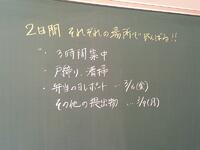 2日間 それぞれの場所でがんばる!!
・3時間集中
・戸締り、清掃
・弁当のヨレポート → 3/6(金)
その他の提出物 → 3/9(月)